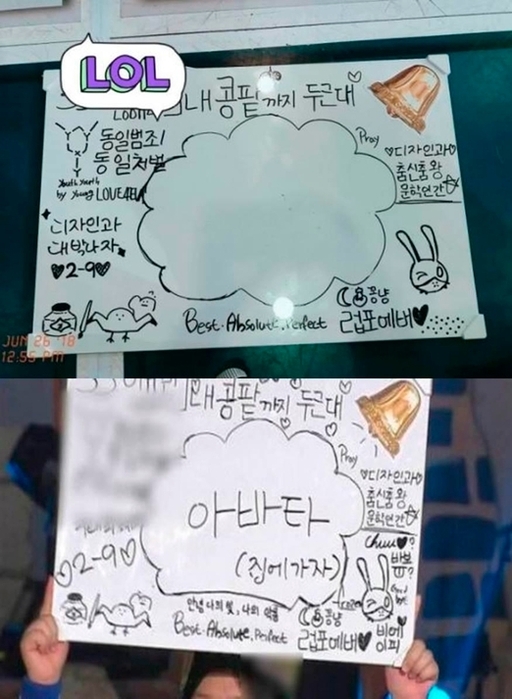 LOL
내 콩팥까지 두근대
Pray
동일범죄
동일처벌
by young LOVE
♡디자인과♡
춤신춤왕
문학연간
디자인과
대박나자
♥2-9♥
Best. Absolute, Perfect
퐁냥
컵포에버♥
JUN 26 '18
12:55 PM
내 콩팥까지 두근대
Pray
♡디자인과♡
춤신춤왕
문학연간
아바타
(집에가자)
♡2-9♡
Chuu♥?
바보
안녕 나의 빛, 나의 악몽
Best. Absolute, Perfect
컵포에버♥
비에
이피